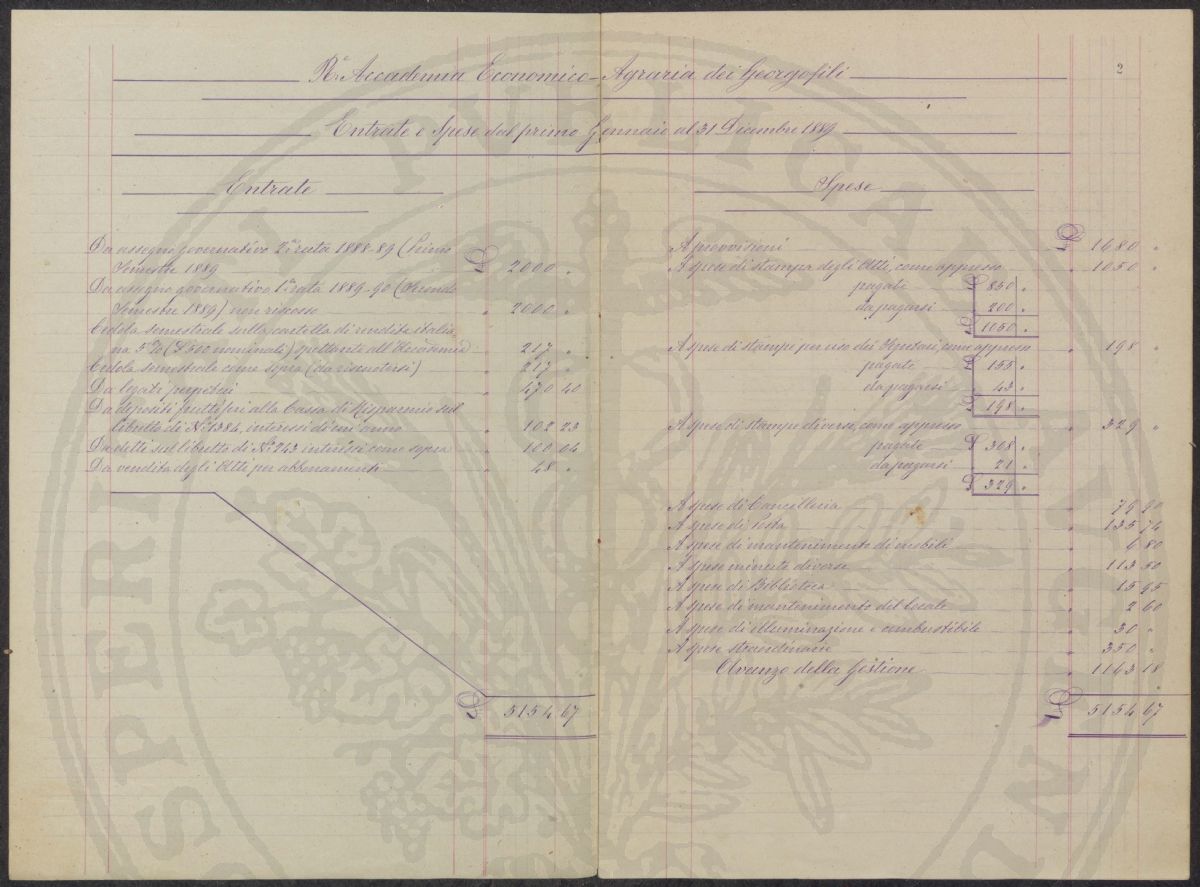 2
Rª Accademia Economico-Agraria dei Georgofili
Entrate e Spese dal primo Gennaio al 31 Dicembre 1889
Entrate
Da assegno governativo 2ª rata 1888-89 (Primo
Semestre 1889 £ 2000 "
Da assegno governativo 1ª rata 1889-90 (Secondo
Semestre 1889) non riscosso " 2000 "
Cedola semestrale sulla cartella di rendita italia
na 5% (£ 500 nominali) spettante all'Accademia " 217 "
Cedola semestrale come sopra (da riscuotersi) " 217 "
Da legati perpetui " 470 40
Da depositi fruttiferi alla Cassa di Risparmio sul
libretto di Nº 1384, interessi di un anno " 102 23
Da detti sul libretto di Nº 243 interessi come sopra " 100 04
Da vendita degli Atti per abbonamenti " 48 "
£ 5154 67
Spese
A provvisioni £ 1680 "
A spese di stampa degli Atti, come appresso " 1050 "
pagate £ 850 "
da pagarsi " 200 "
£ 1050 "
A spese di stampe per uso dei , come appresso " 198 "
pagate £ 155 "
da pagarsi " 43 "
£ 198 "
A spese di stampe diverse, come appresso " 329 "
pagate £ 308 "
da pagarsi " 21 "
£ 329 "
A spese di Cancelleria " 79 90
A spese di Posta " 135 74
A spese di mantenimento di mobili " 6 80
A spese minute diverse " 113 50
A spese di Biblioteca " 15 95
A spese di mantenimento del locale " 2 60
A spese di illuminazione e combustibile " 30 "
A spese straordinarie " 350 "
Avanzo della Gestione " 1163 18
£ 5154 67